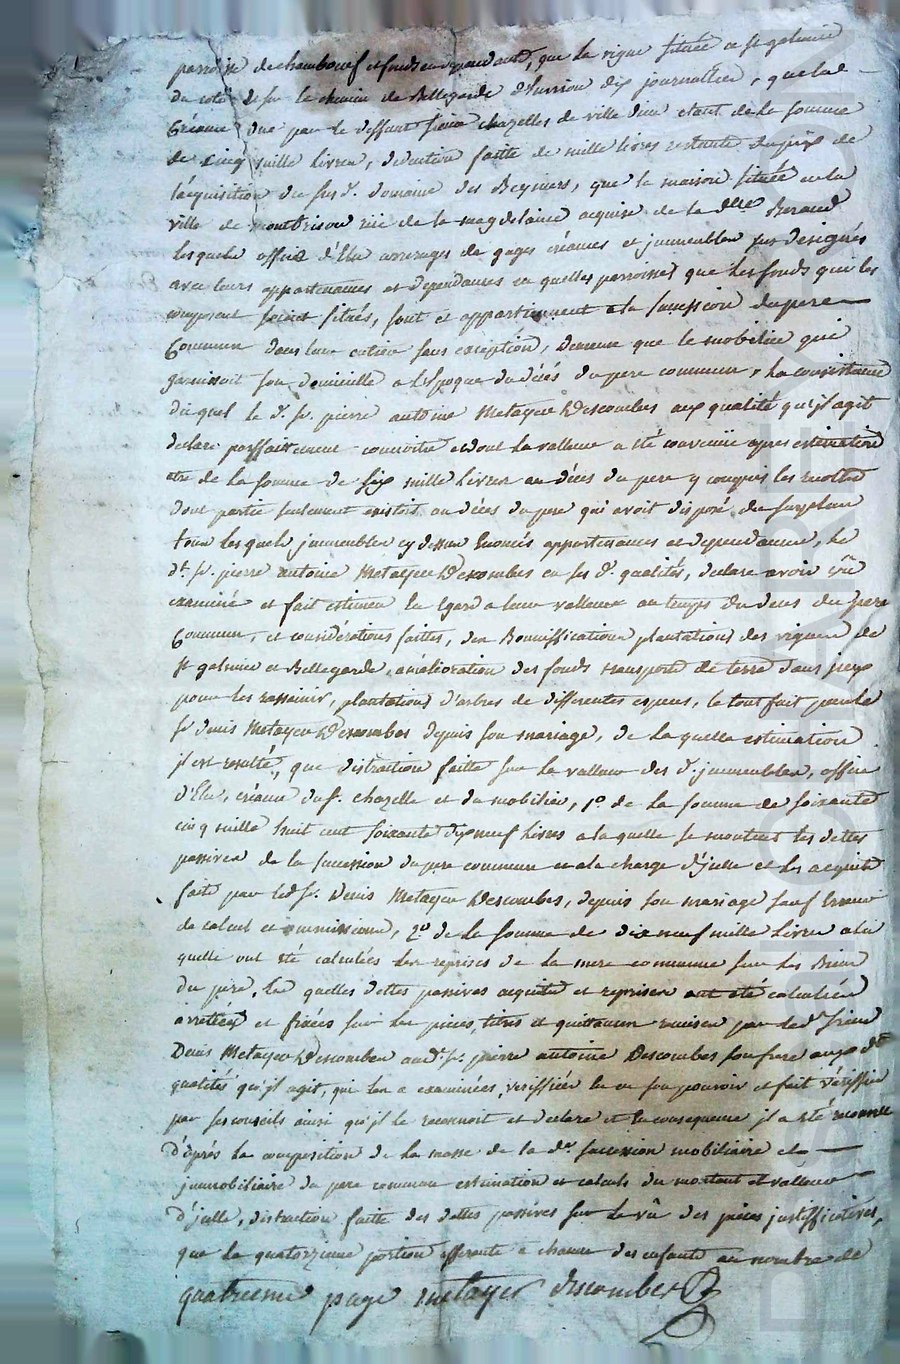 paroisse de chambœuf et fonds en dependants, que la vigne située a st galmier
du coté de sur le chemin de Bellegarde d'Environ dix journaliers, que la
Créance due par le deffunt sieur chazelles de ville dieu etant de la somme
de cinq mille livres, deduction faitte de mille livres restante du prix de
l'acquisition du susd. domaine des Beyniers, que la maison située en la
ville de montbrison rüe de la magdelaine acquise de la dlle Beraud
lesquels office d'Elu arrerages de gages créances et jmmeubles sus designés
avec leurs appartenances et dependances en quelles parroisses que les fonds qui les
composent soient situés, sont et appartiennent a la succession du pere
Commun dans leur entier sans exception, de meme que le mobilier qui
garnissoit son domicille a l'Epoque du décés du pere commun, la consistance
duquel le d. sr. pierre antoine Metayer Descombes aux qualités qu'jl agit
declare parffaitement connoitre et dont la valleur a été convenüe apres estimation
etre de la somme de six mille livres au décés du pere y compris les recoltes
dont partie seulement existoit au décés du pere qui avoit disposé du surplus
tous lesquels jmmeubles cy dessus Enoncés appartenances et dependances, le
dt. sr. pierre antoine Metayer Descombes en ses d. qualités, declare avoir vû
examiné et fait estimer Eu Egard a leur valleur au temps du deces du pere
Commun, et considérations faittes, des Bonniffications plantations des vignes de
st galmier et Bellegarde, amélioration des fonds transports de terre dans jceux
pour les rassainir, plantations d'arbres de differentes especes, le tout fait par le
sr denis Metayer Descombes depuis son mariage, de laquelle estimation
jl est resulté, que distraction faitte sur la valleur des d. jmmeubles, office
d'Elu, créance du s. chazelle et du mobilier, 1º de la somme de soixante
cinq mille huit cent soixante dix neuf livres a laquelle se montent les dettes
passives de la succession du pere commun et a la charge d'jcelle et les acquits
fait par led sr. Denis Metayer Descombes, depuis son mariage sauf Erreur
de calcul et ommissions, 2º de la somme de dix neuf mille Livres a la
quelle ont été calculées les reprises de la mere commune sur les Biens
du pere, Les quelles dettes passives acquits et reprises ont été calculées
arretées et fixées sur les pieces, titres et quittances remises par led. sieur
Denis Metayer Descombes aud. sr. pierre antoine Descombes son frere auxd.
qualités qu'jl agit, qui les a examinées, verifiées les a en son pouvoir et fait vériffier
par ses conseils ainsi qu'jl le reconnoit et declare et en consequence jl a été reconnu
d'aprés la composition de la masse de la de. succession mobiliaire et
jmmobiliaire du pere commun estimation et calculs du montant et valleur
d'jcelle, distraction faite des dettes passives sur le vû des pieces justifficatives,
que la quatorzieme portion afferante a chacun des enfants au nombre de
quatrieme page metayer descombes